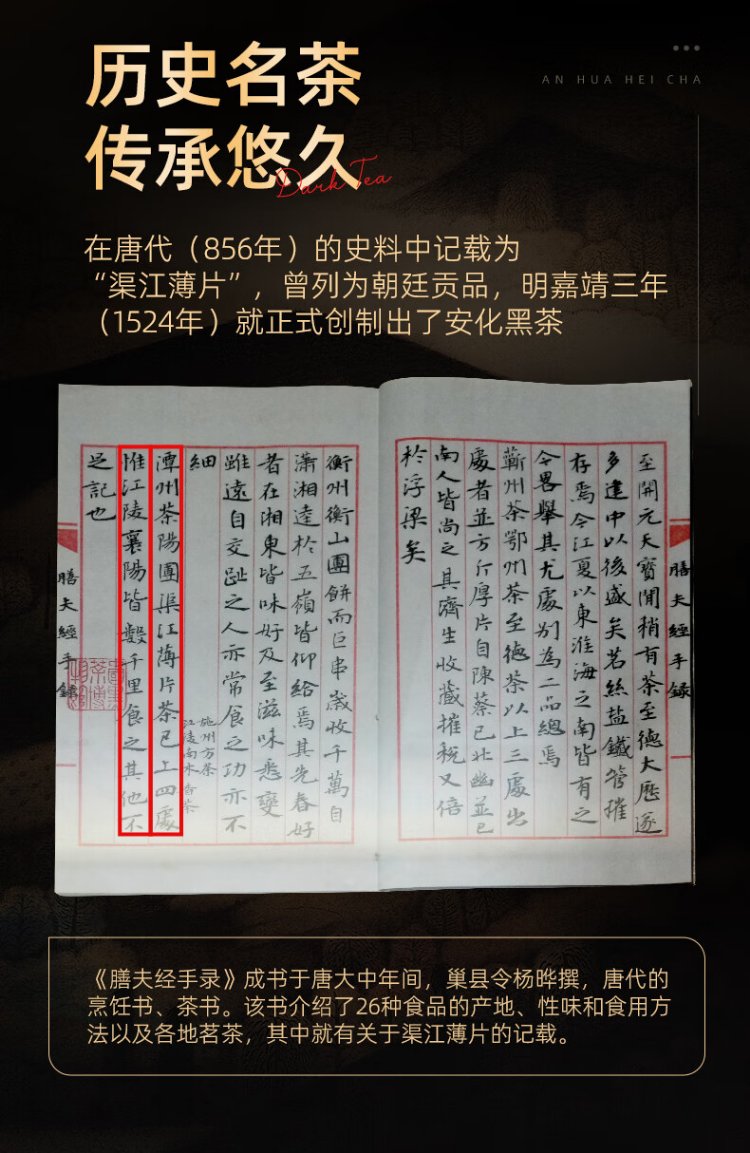 历史名茶
AN HUA HEI CHA
传承悠久
Dark Tea
在唐代（856年）的史料中记载为
“渠江薄片”，曾列为朝廷贡品，明嘉靖三年
（1524年）就正式创制出了安化黑茶
膳夫經手録
至開元天寶間稍有茶至德大歷遂
多建中以後盛矣茗絲盐鐵管搉
存焉今江夏以東淮海之南皆有之
今畧舉其尤處別為二品總焉
蘄州茶鄂州茶至德茶以上三處出
處者並方斤厚片自陳蔡已北幽並已
南人皆尚之其濟生收藏搉稅又倍
於浮梁矣
衡州衡山團餅而巨串歲收千萬自
瀟湘達於五嶺皆仰給焉其先春好
者在湘東皆味好及至滋味悉變
雖遠自交趾之人亦常食之功亦不
細
施州方茶
江陵南木香茶
潭州茶陽團渠江薄片茶已上四處
惟江陵襄陽皆數千里食之其他不
足記也
膳夫經手録
《膳夫经手录》成书于唐大中年间，巢县令杨晔撰，唐代的
烹饪书、茶书。该书介绍了26种食品的产地、性味和食用方
法以及各地茗茶，其中就有关于渠江薄片的记载。